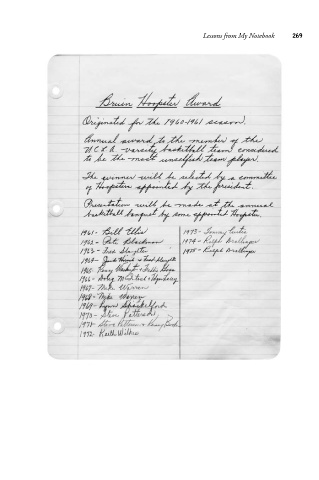 Lessons from My Notebook 269
Bruin Hoopster Award
Originated for the 1960-1961 season.
Annual award to the member of the
U C L A varsity basketball team considered
to be the most unselfish team player.
The winner will be selected by a committee
of Hoopsters appointed by the president.
Presentation will be made at the annual
basketball banquet by some appointed Hoopster.
1961- Bill Ellis
1962- Pete Blackman
1963- Fred Slaughter
1964- Jack Hirsch & Fred Slaughter
1965- Kenny Washington &
1966- Doug McIntosh &
1967- Mike Warren
1968- Mike Warren
1969- Lynn Shackelford
1970- Steve Patterson
1971- Steve Patterson & Kenny Booker
1972 Keith Wilkes
1973- Tommy Curtis
1974- Ralph Drollinger
1975- Ralph Drollinger